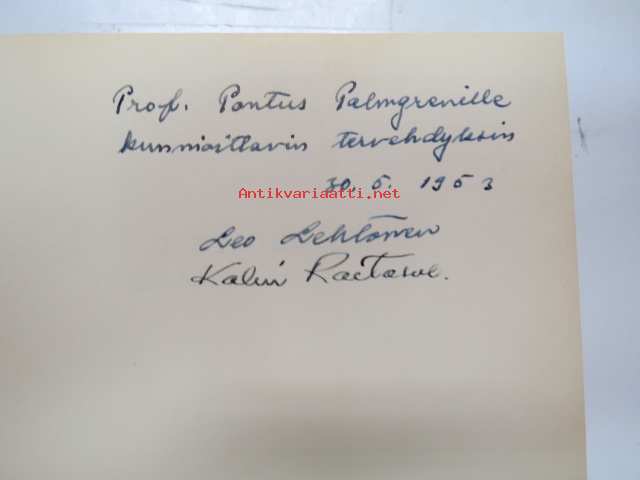 Prof. Pontus Palmgrenille
kunnioittavin tervehdyksin
30. 5. 1953
Antikvariaatti.net
Leo Lehtonen
Kalevi Raitasuo.